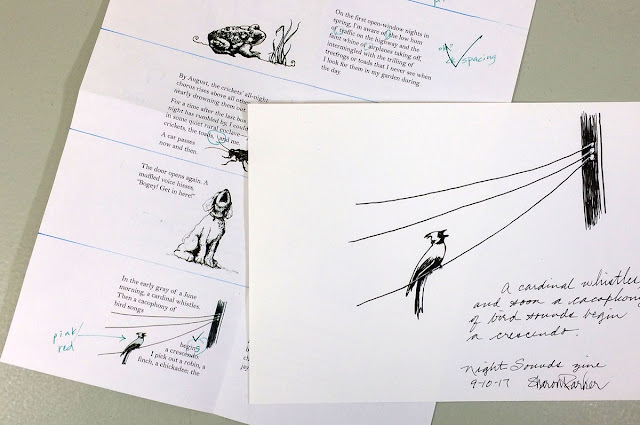 On the first open-window nights in
spring, I'm aware of the low hum
of traffic on the highway and the
faint whine of airplanes taking off,
intermingled with the trilling of
treefrogs or toads that I never see when
I look for them in my garden during
the day.
spacing
By August, the crickets' all-night
chorus rises above all other
nearly drowning them out
For a time after the last box
night has rumbled by, I could
in some quiet rural enclave—
crickets, the toads, and me
A car passes
now and then.
The door opens again. A
muffled voice hisses,
"Bogey! Get in here!"
In the early gray of a June
morning, a cardinal whistles.
Then a cacophony of
bird songs
begins
a crescendo.
I pick out a robin, a
finch, a chickadee; the
joy
print
red
A cardinal whistles,
and soon a cacophony
of bird sounds begin
a crescendo.
Night Sounds zine
9-10-17 Sharon Parker